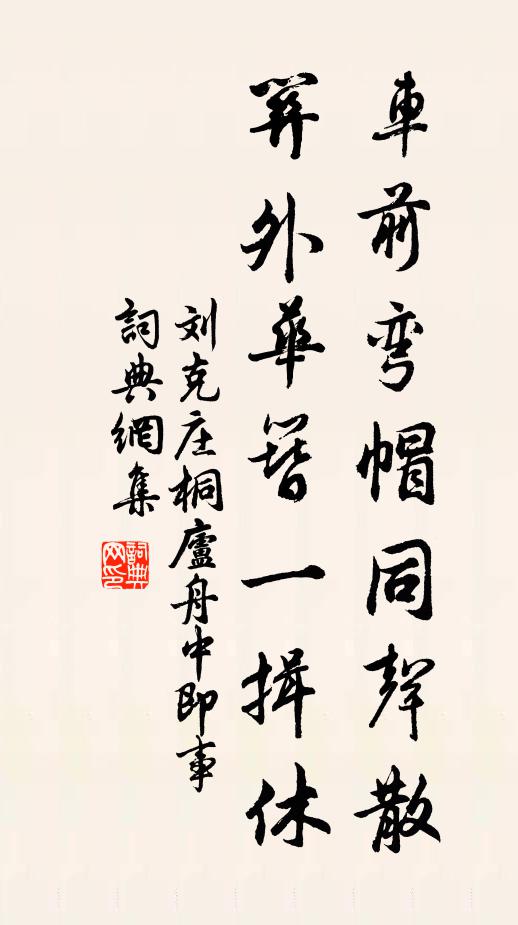 車前弯帽同聲散
笄外華簪一揖休
刘克庄桐廬舟中即事
詞典網集
詞典
网印